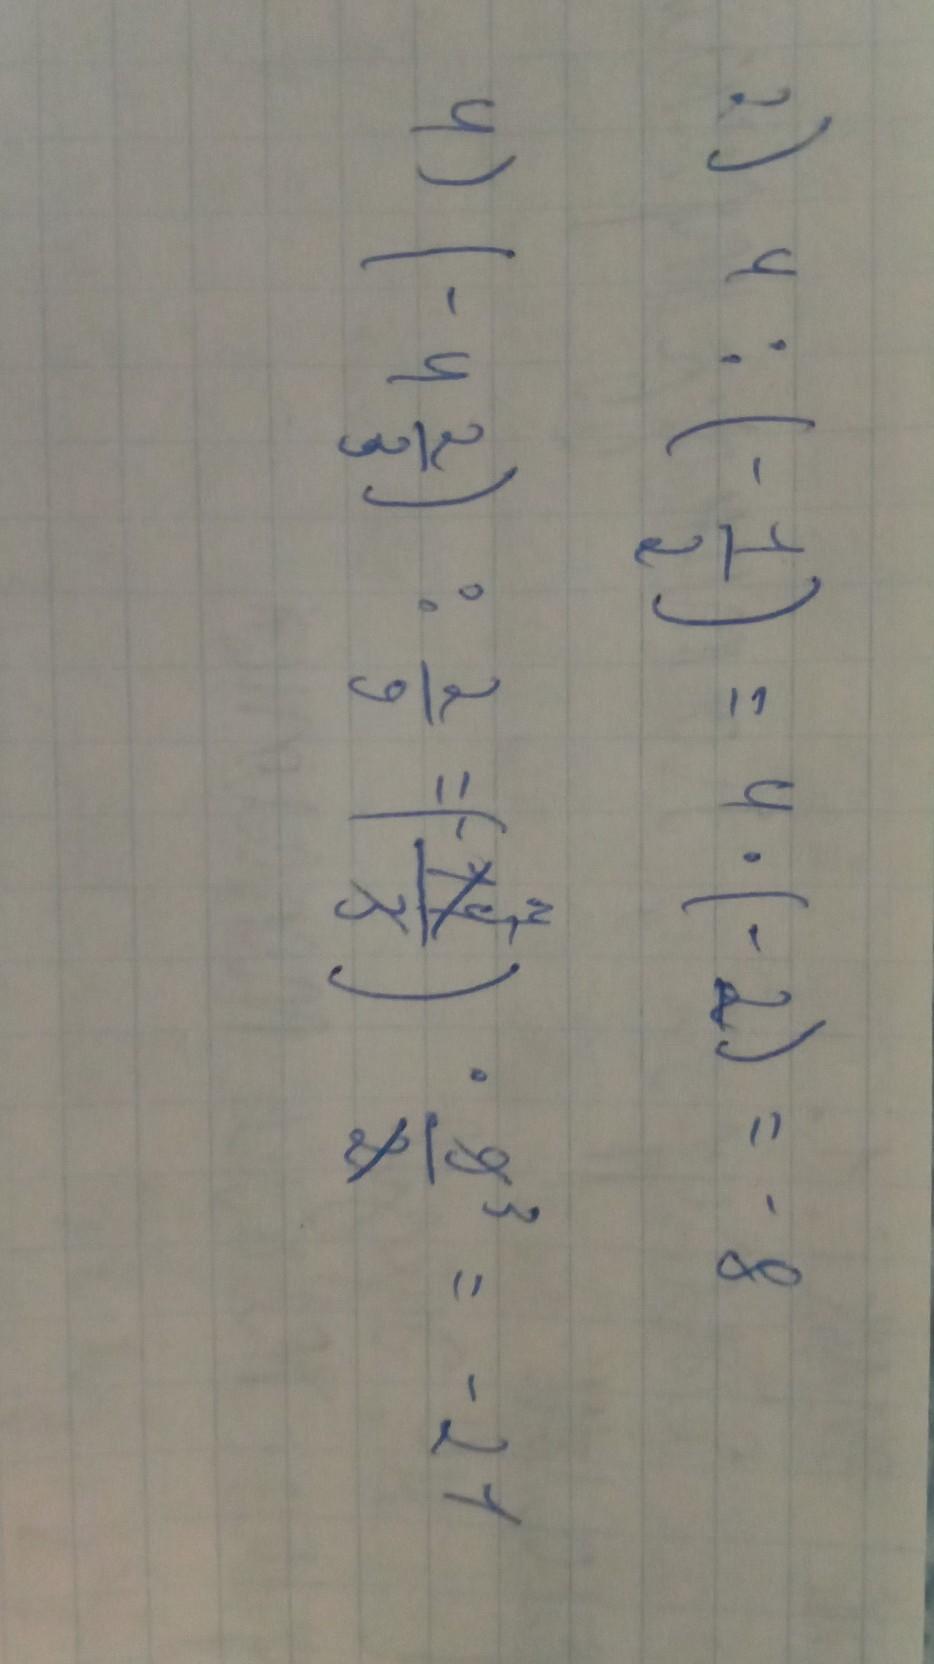 2) 4 : (- 1/2) = 4 · (- 2) = - 8
4) (- 4 2/3) : 2/9 = (- 14/3) 7 · 9/2 3 = - 21